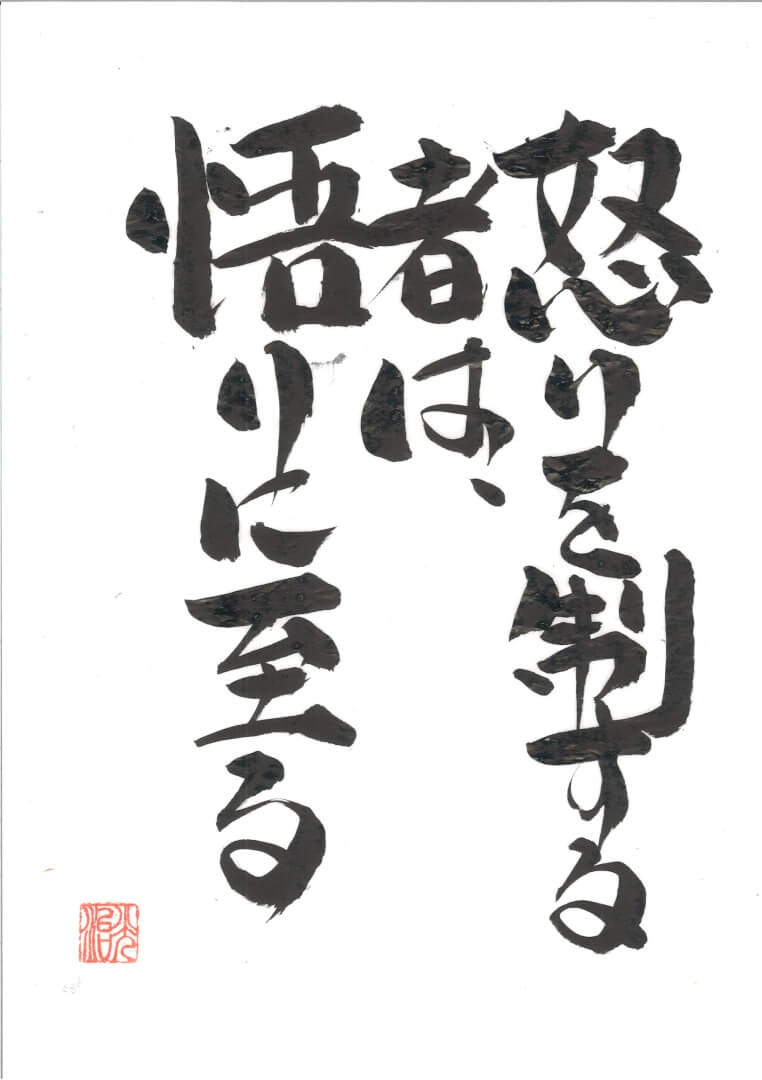 怒りを制する
者は、
悟りに至る